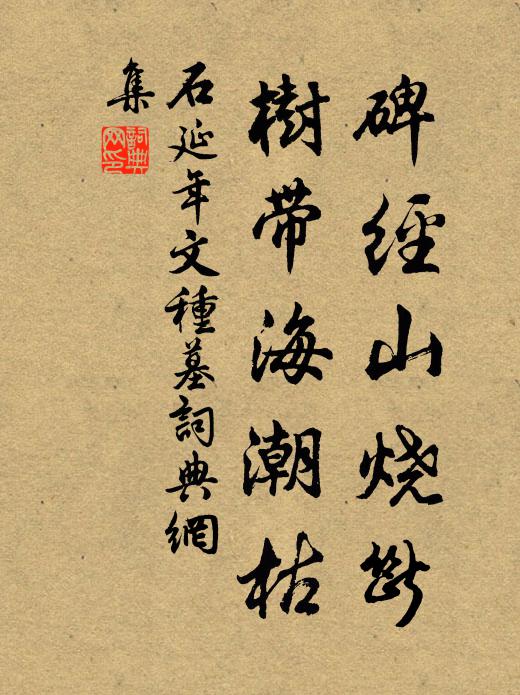 碑經山燒斷
樹帶海潮枯
石延年文種墓詞典網
集
詞典網印